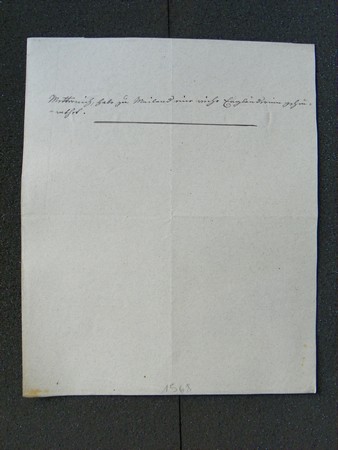 Metternich habe zu Mailand eine reiche Engländerinn gehei-
-rathet.
1568